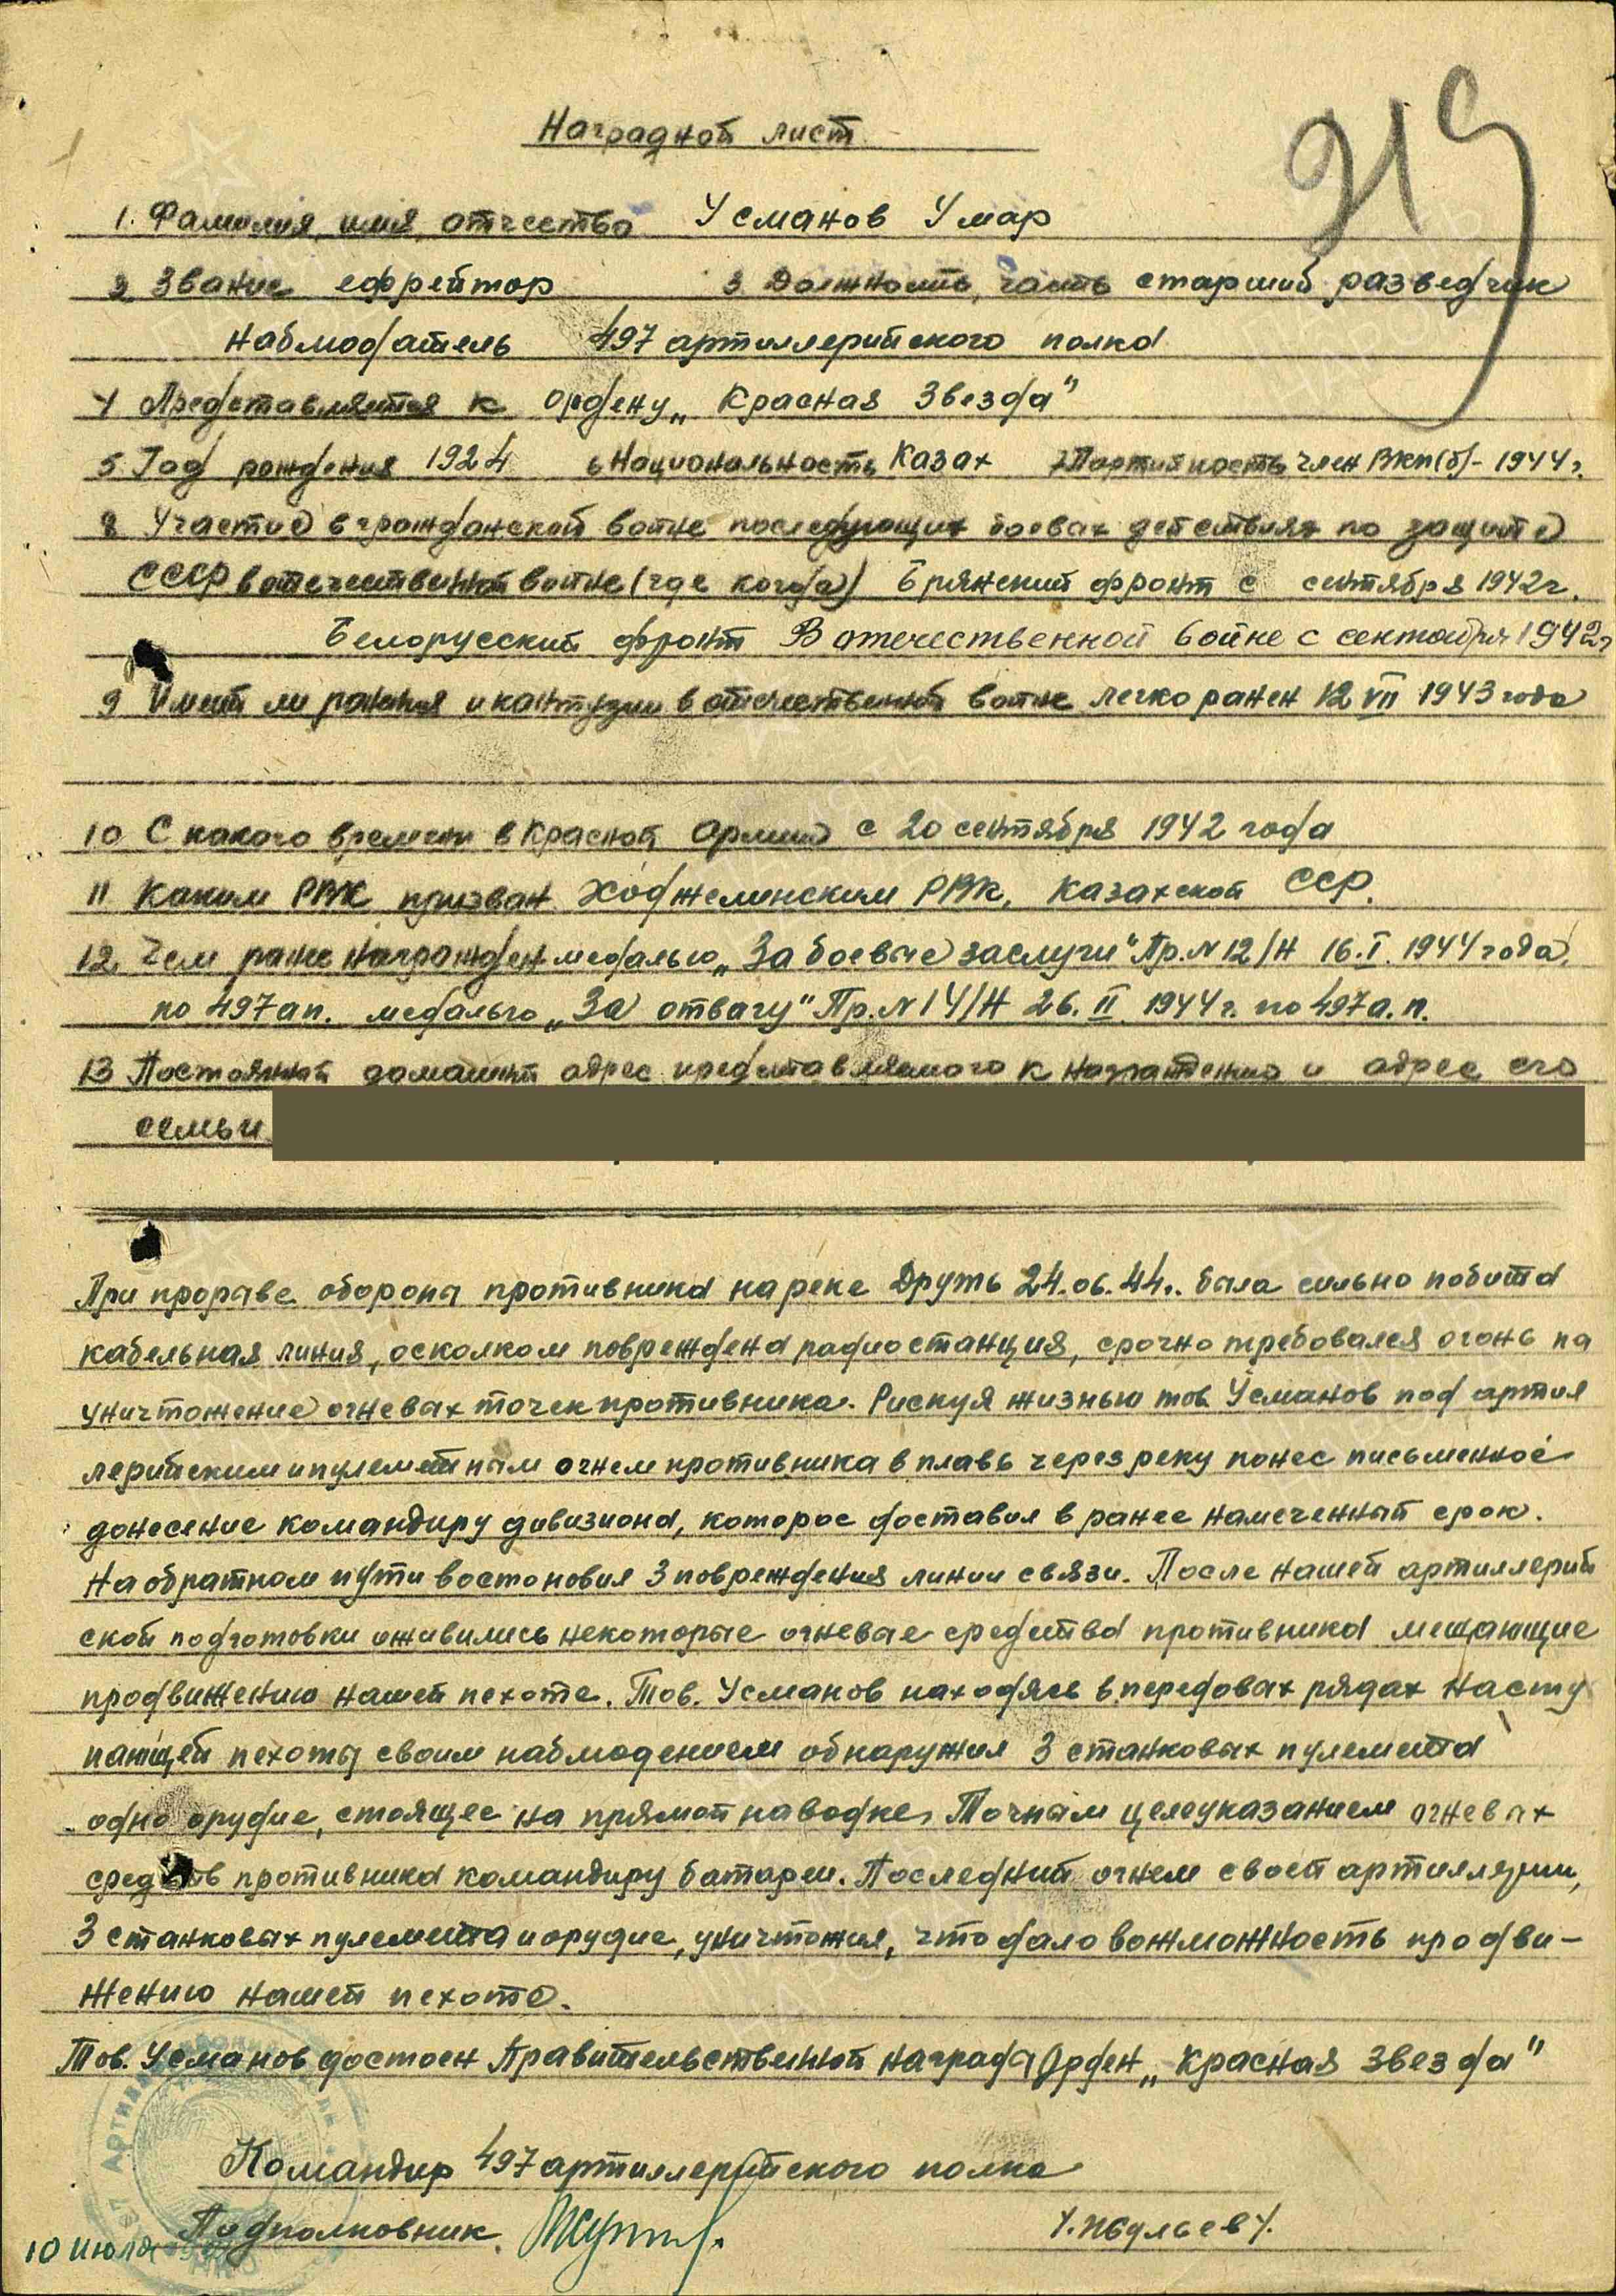 Наградной лист
319
1. Фамилия, имя, отчество Усманов Умар
2 Звание ефрейтор 3 Должность, часть старший разведчик
наблюдатель 497 артиллерийского полка
4 Представляется к ордену „Красная Звезда"
5 Год рождения 1924 6 Национальность Казах 7 Партийность член ВКП(б)- 1944 г.
8 Участие в гражданской войне последующих боевых действиях по защите
СССР в отечественной войне (где когда) Брянский фронт с сентября 1942г.
Белорусский фронт В отечественной войне с сентября 1942г
9 Имеет ли ранения и контузии в отечественной войне легко ранен 12 VII 1943 года
10 С какого времени в Красной Армии с 20 сентября 1942 года
11 Каким РВК призван Ходжелинским РВК, Казахской ССР.
12. Чем ранее награжден медалью „За боевые заслуги" Пр.N 12/н 16.I.1944 года,
по 497ап. медалью „За отвагу" Пр.N 14/н 26.II 1944г. по 497а.п.
13 Постоянный домашний адрес представляемого к награждению и адрес его
семьи
При прорыве обороны противника на реке Друть 24.06.44.. была сильно побита
кабельная линия, осколком повреждена радиостанция, срочно требовался огонь на
уничтожение огневых точек противника. Рискуя жизнью тов. Усманов под артил
лерийским и пулеметным огнем противника в плавь через реку понес письменное
донесение командиру дивизиона, которое доставил в ранее намеченный срок.
На обратном пути востоновил 3 повреждения линии связи. После нашей артиллерий
ской подготовки оживились некоторые огневые средства противника мешающие
продвижению нашей пехоте. Тов. Усманов находясь в передовых рядах насту
пающей пехоты своим наблюдением обнаружил 3 станковых пулемета
одно орудие, стоящее на прямой наводке, Точным целеуказанием огневых
средств противника командиру батареи. Последний огнем своей артиллерии,
3 станковых пулемета и орудие, уничтожил, что дало вожможность продви-
жению нашей пехоте.
Тов. Усманов достоен Правительственной награды Орден „Красная Звезда"
Командир 497 артиллерийского полка
Подполковник.
10 июля